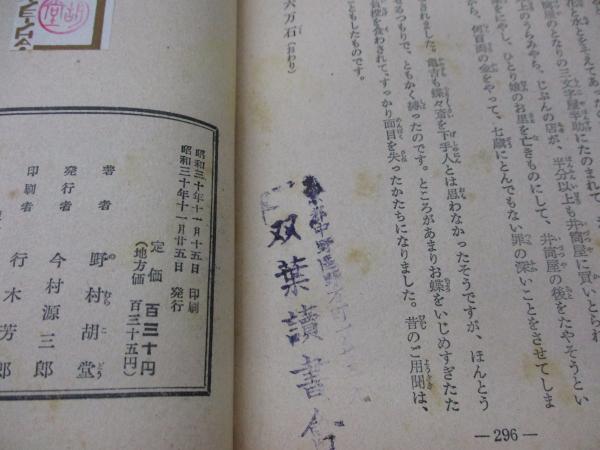 水とをまえてあった
井筒屋のとなりの三文字屋半助にたのまれて、
上のうらみから、じぶんの店が、半分以上も井筒屋に買いとられ
にやし、ひとり娘のお里を亡きものにして、井筒屋の後をたやそうとい
から、何百両の金をやって、七蔵にとんでもない罪の深いことをさせてしま
されました。亀吉も蝶々斎を下手人とは思わなかったそうですが、ほんとう
せるつもりで、ともかく縛ったのです。ところがあまりお蝶をいじめすぎたた
負投を食わされて、すっかり面目を失ったかたちになりました。昔のご用聞は、
こともしたものです。
六万石（おわり）
双葉讀書会
—296—
胡堂
昭和三十年十一月十五日 印刷
昭和三十年十一月廿五日 発行
定価 百三十円
（地方価 百三十五円）
著者 野村胡堂
発行者 今村源三郎
印刷者 行木芳郎